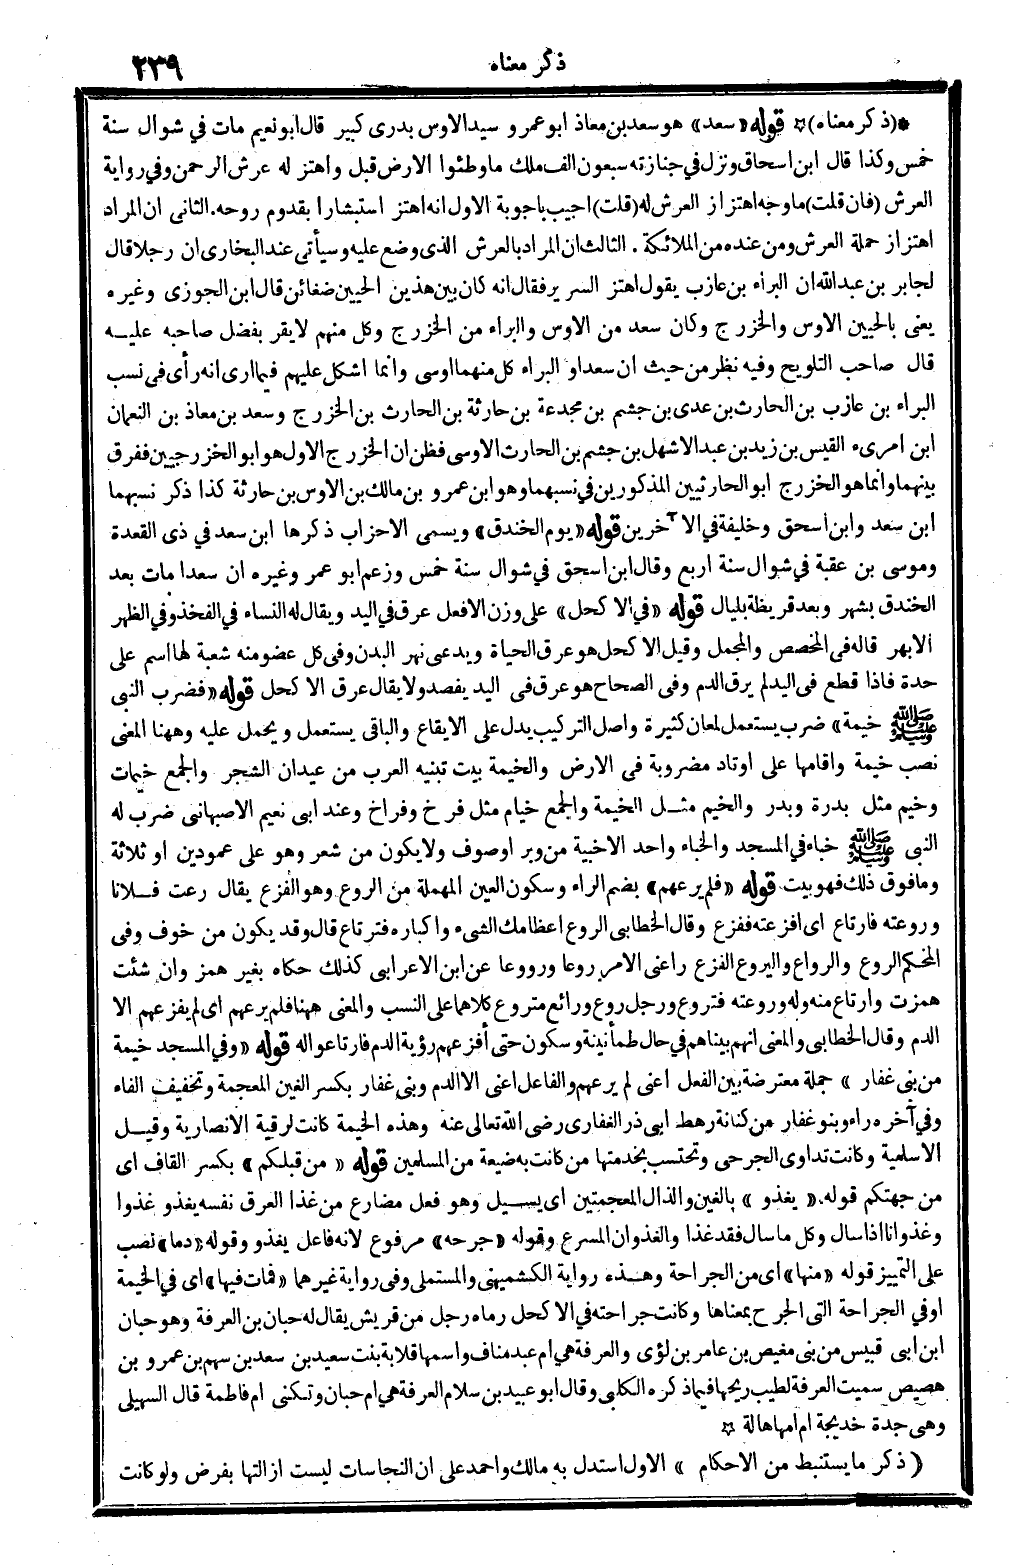 ذكر معناه
٢٣٩
*(ذكر معناه)* قوله «سعد» هو سعد بن معاذ ابو عمرو سيد الاوس بدرى كبير قال ابو نعيم مات في شوال سنة
خمس وكذا قال ابن اسحاق ونزل في جنازته سبعون الف ملك ما وطئوا الارض قبل واهتز له عرش الرحمن وفي رواية
العرش (فان قلت) ما وجه اهتزاز العرش له (قلت) اجيب باجوبة الاول انه اهتز استبشارا بقدوم روحه. الثانى ان المراد
اهتزاز حملة العرش ومن عنده من الملائكة . الثالث ان المراد بالعرش الذى وضع عليه وسيأتى عند البخارى ان رجلا قال
لجابر بن عبد الله ان البراء بن عازب يقول اهتز السرير فقال انه كان بين هذين الحيين ضغائن قال ابن الجوزى وغيره
يعنى بالحيين الاوس والخزرج وكان سعد من الاوس والبراء من الخزرج وكل منهم لايقر بفضل صاحبه عليه
قال صاحب التلويح وفيه نظر من حيث ان سعدا و البراء كل منهما اوسى وانما اشكل عليهم فيما ارى انه رأى فى نسب
البراء بن عازب بن الحارث بن عدى بن جشم بن مجدعة بن حارثة بن الحارث بن الخزرج وسعد بن معاذ بن النعمان
ابن امرىء القيس بن زيد بن عبد الاشهل بن جشم بن الحارث الاوسى فظن ان الخزرج الاول هو ابو الخزرجيين ففرق
بينهما وانما هو الخزرج ابو الحارثيين المذكورين في نسبهما وهو ابن عمرو بن مالك بن الاوس بن حارثة كذا ذكر نسبهما
ابن سعد وابن اسحق وخليفة في الآخرين قوله «يوم الخندق» ويسمى الاحزاب ذكرها ابن سعد في ذى القعدة
وموسى بن عقبة في شوال سنة اربع وقال ابن اسحق في شوال سنة خمس وزعم ابو عمر وغيره ان سعدا مات بعد
الخندق بشهر وبعد قريظة بليال قوله «في الاكحل» على وزن الافعل عرق في اليد ويقال له النساء في الفخذ وفي الظهر
الابهر قاله فى المخصص والمجمل وقيل الاكحل هو عرق الحياة ويدعى نهر البدن وفى كل عضو منه شعبة لها اسم على
حدة فاذا قطع فى اليد لم يرق الدم وفى الصحاح هو عرق فى اليد يفصد ولا يقال عرق الاكحل قوله «فضرب النبى
ﷺ خيمة» ضرب يستعمل لمعان كثيرة واصل التركيب يدل على الايقاع والباقى يستعمل ويحمل عليه وههنا المعنى
نصب خيمة واقامها على اوتاد مضروبة فى الارض والخيمة بيت تبنيه العرب من عيدان الشجر والجمع خيمات
وخيم مثل بدرة وبدر والخيم مثل الخيمة والجمع خيام مثل فرخ وفراخ وعند ابى نعيم الاصبهانى ضرب له
النبى ﷺ خباء في المسجد والخباء واحد الاخبية من وبر او صوف ولا يكون من شعر وهو على عمودين او ثلاثة
وما فوق ذلك فهو بيت قوله «فلم يرعهم» بضم الراء وسكون العين المهملة من الروع وهو الفزع يقال رعت فلانا
وروعته فارتاع اى افزعته ففزع وقال الخطابى الروع اعظامك الشىء واكباره فترتاع قال وقد يكون من خوف وفى
المحكم الروع والرواع واليروع الفزع راعنى الامر روعا ورووعا عن ابن الاعرابى كذلك حكاه بغير همز وان شئت
همزت وارتاع منه وله وروعته فتروع ورجل روع ورائع متروع كلاهما على النسب والمعنى ههنا فلم يرعهم اى لم يفزعهم الا
الدم وقال الخطابى والمعنى انهم بيناهم في حال طمأنينة وسكون حتى أفزعهم رؤية الدم فارتاعوا له قوله «وفي المسجد خيمة
من بنى غفار» جملة معترضة بين الفعل اعنى لم يرعهم والفاعل اعنى الا الدم وبنى غفار بكسر الغين المعجمة وتخفيف الفاء
وفي آخره راء وبنو غفار من كنانة رهط ابى ذر الغفارى رضى الله تعالى عنه وهذه الخيمة كانت لرقية الانصارية وقيل
الاسلمية وكانت تداوى الجرحى وتحتسب بخدمتها من كانت به ضيعة من المسلمين قوله «من قبلكم» بكسر القاف اى
من جهتكم قوله. «يغذو» بالغين والذال المعجمتين اى يسيل وهو فعل مضارع من غذا العرق نفسه يغذو غذوا
وغذوانا اذا سال وكل ما سال فقد غذا والغذوان المسرع وقوله «جرحه» مرفوع لانه فاعل يغذو وقوله «دما» نصب
على التمييز قوله «منها» اى من الجراحة وهذه رواية الكشميهنى والمستملى وفى رواية غيرهما «فمات فيها» اى في الخيمة
او في الجراحة التى الجرح بمعناها وكانت جراحته في الاكحل رماه رجل من قريش يقال له حبان بن العرفة وهو حبان
ابن ابى قبيس من بنى مغيص بن عامر بن لؤى والعرفة هي ام عبد مناف واسمها قلابة بنت سعيد بن سعد بن سهم بن عمرو بن
هصيص سميت العرفة لطيب ريحها فيما ذكره الكلبى وقال ابو عبيد بن سلام العرفة هي ام حبان وتكنى ام فاطمة قال السهيلى
وهى جدة خديجة ام امها هالة *
( ذكر ما يستنبط من الاحكام » الاول استدل به مالك واحمد على ان النجاسات ليست ازالتها بفرض ولو كانت